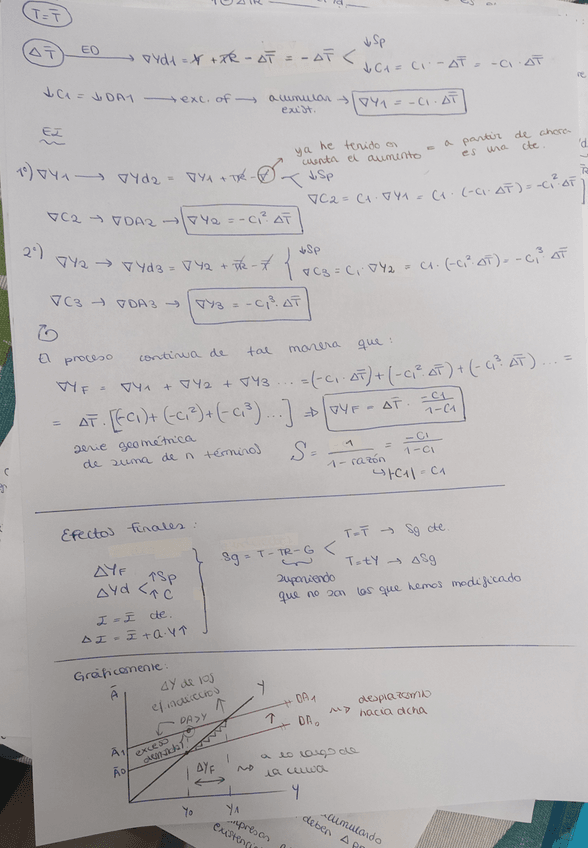 T = T̄
ΔT̄ —EO→ ∇Yd1 = Y + TR - ΔT̄ = - ΔT̄ < ↓Sp
↓C1 = C1 · - ΔT̄ = - C1 · ΔT̄
↓C1 = ↓DA1 → exc. of → acumular exist. → ∇Y1 = - C1 · ΔT̄
EI
ya he tenido en cuenta el aumento = a partir de ahora es una cte.
1º) ∇Y1 → ∇Yd2 = ∇Y1 + TR - T < ↓Sp
∇C2 = C1 · ∇Y1 = C1 · (-C1 · ΔT̄) = -C1² · ΔT̄
∇C2 → ∇DA2 → ∇Y2 = -C1² · ΔT̄
2º) ∇Y2 → ∇Yd3 = ∇Y2 + TR - T { ↓Sp
∇C3 = C1 · ∇Y2 = C1 · (-C1² · ΔT̄) = -C1³ · ΔT̄
∇C3 → ∇DA3 → ∇Y3 = -C1³ · ΔT̄
El proceso continua de tal manera que :
∇YF = ∇Y1 + ∇Y2 + ∇Y3 ... = (-C1 · ΔT̄) + (-C1² · ΔT̄) + (-C1³ · ΔT̄) ... =
= ΔT̄ · [(-C1) + (-C1²) + (-C1³) ...] ⇒ ∇YF = ΔT̄ · -C1/1-C1
serie geométrica
de suma de n términos S = 1/1-razón = -C1/1-C1
↳ |-C1| = C1
Efectos finales :
ΔYF
ΔYd < ↑Sp
↑C
I = Ī cte.
ΔI = Ī + a·Y↑
Sg = T - TR - G < T = T̄ → Sg cte.
T = tY → ΔSg
suponiendo
que no son las que hemos modificado
Gráficamente.
Ā
ΔY de los
ef. indirectos
Y
DA1
DA>Y
DA0
desplazamto
hacia dcha
Ā1
exceso
demanda
Ā0
ΔYF
a lo largo de
la curva
Y0
Y1
Y
acumulando
deben
empresas
existencias